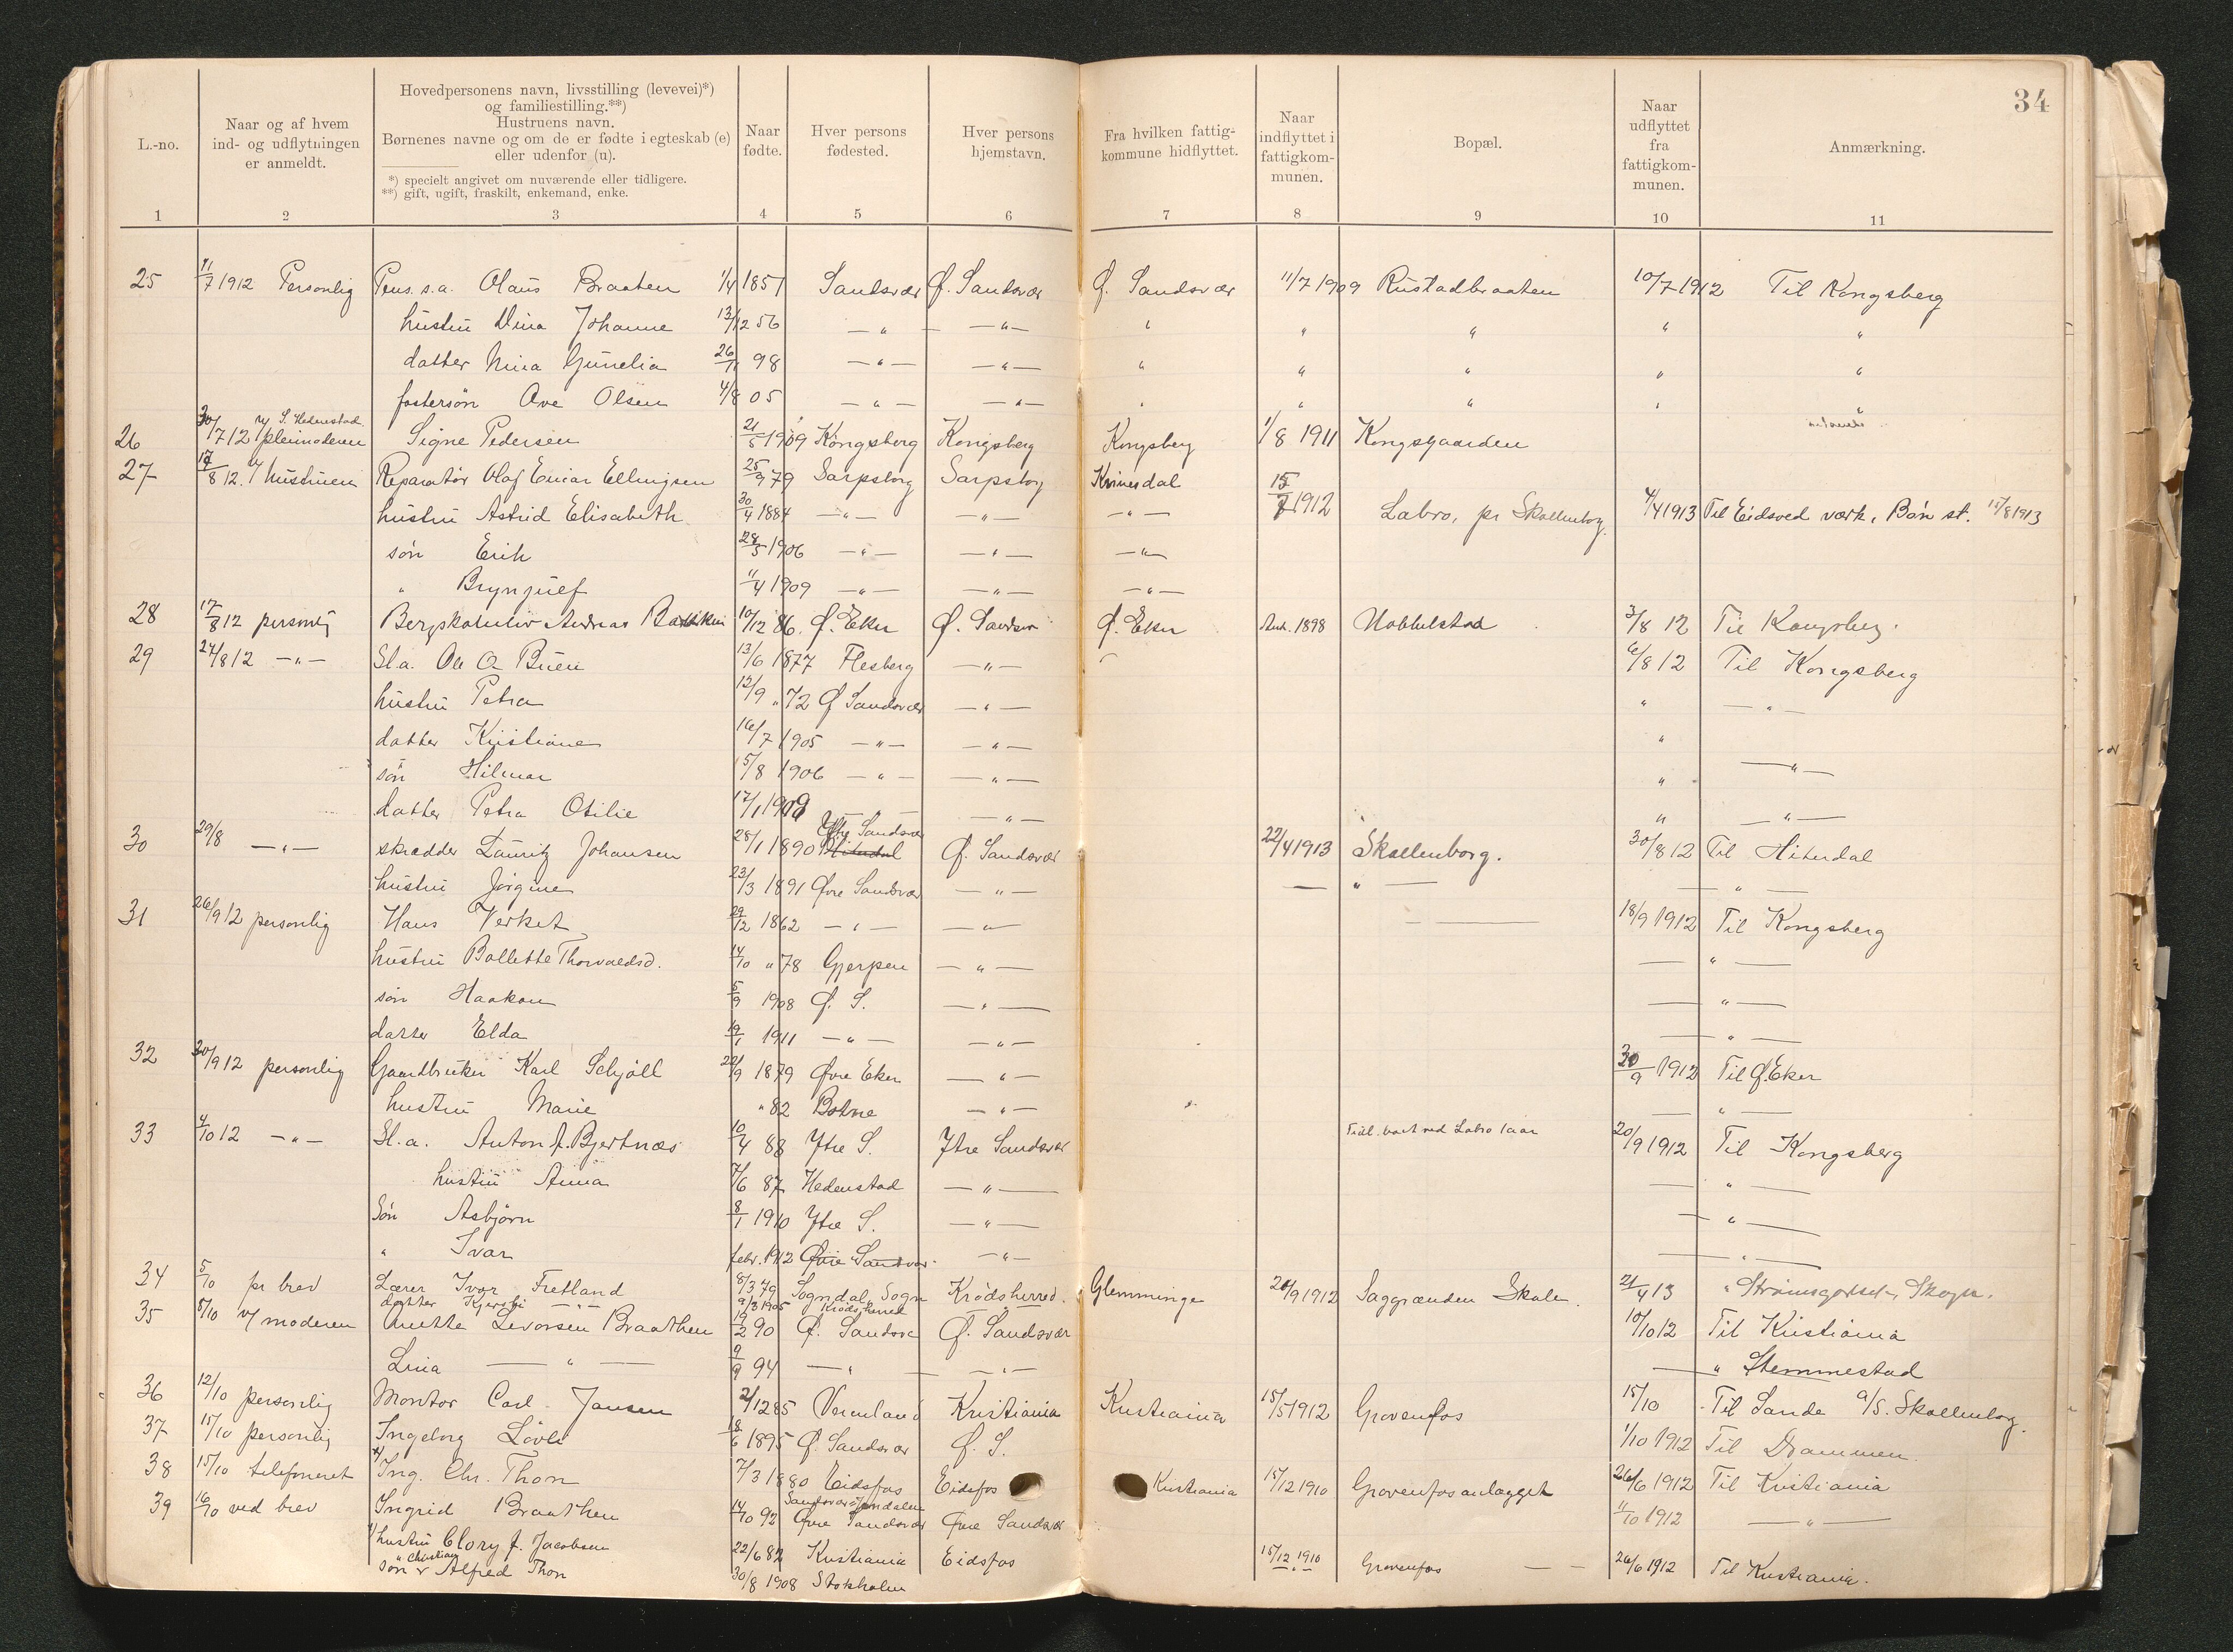 34
L.-no.
Naar og af hvem ind- og udflytningen er anmeldt.
Hovedpersonens navn, livsstilling (levevei)*)
og familiestilling.**)
Hustruens navn.
Børnenes navne og om de er fødte i egteskab (e)
eller udenfor (u).
*) specielt angivet om nuværende eller tidligere.
**) gift, ugift, fraskilt, enkemand, enke.
Naar fødte.
Hver persons fødested.
Hver persons hjemstavn.
Fra hvilken fattigkommune hidflyttet.
Naar indflyttet i fattigkommunen.
Bopæl.
Naar udflyttet fra fattigkommunen.
Anmærkning.
1 2 3 4 5 6 7 8 9 10 11
25 11/7 1912 Personlig Pens. s.a. Olaus Braaten 1/4 1857 Sandsvær Ø. Sandsvær Ø. Sandsvær 11/7 1909 Rustadbraaten 10/7 1912 Til Kongsberg
hustru Dina Johanne 13/12 56 — " — — " — " " " " "
datter Nina Gunelia 26/11 98 — " — — " — " " " " "
fostersøn Ove Olsen 4/8 05 — " — — " — " " " " "
26 30/7 12 v/ S. Hedenstad pleimoderen Signe Pedersen 21/5 1909 Kongsberg Kongsberg Kongsberg 1/8 1911 Kongsgaarden
27 17/8 12. v/ hustruen Reparatør Olaf Einar Ellingsen 25/9 79 Sarpsborg Sarpsborg Kvinesdal
hustru Astrid Elisabeth 30/4 1884 — " — — " — — " — 15/7 1912 Labro, pr Skollenborg. 4/4 1913 Til Eidsvold værk, Bøn st. 15/8 1913
søn Erik 28/5 1906 — " — — " — — " —
" Brynjulf 11/4 1909 — " — — " — — " —
28 17/8 12 personlig Andreas 10/12 86. Ø. Eker Ø. Sandsvær Ø. Eker 1898 3/8 12 Til Kongsberg.
29 24/8 12 — " — Sl.a. Ole O Buen 13/6 1877 Flesberg — " — 6/8 12 Til Kongsberg
hustru Petra 12/9 " 72 Ø Sandsvær — " — " — " —
datter Kristiane 16/7 1905 — " — — " — "
søn Hilmar 5/8 1906 — " — — " — " — " —
datter Petra Otilie 17/1 1909 — " — " — " —
30 29/8 — " — skrædder Lauritz Johansen 28/1 1890 Ytre Sandsvær Hiterdal Ø. Sandsvær 22/4 1913 Skollenborg. 30/8 12 Til Hiterdal
hustru Jørgine 23/3 1891 Øvre Sandsvær — " — — " — — " —
31 26/9 12 personlig Hans Verket 29/12 1862 — " — — " — 18/9 1912 Til Kongsberg
hustru Bollette Thorvaldsd. 14/10 " 78 Gjerpen — " — — " —
søn Haakon 5/9 1908 Ø. S. — " — — " —
datter Elda 19/1 1911 — " — — " — — " —
32 30/9 12 personlig Gaardbruker Karl Schjøll 22/9 1879 Øvre Eker — " — 30/9 1912 Til Ø. Eker
hustru Marie " 82 Botne — " — — " —
33 4/10 12 — " — Sl.a. Anton A. Bjertnæs 10/4 88 Ytre S. Ytre Sandsvær ved Labro 20/9 1912 Til Kongsberg
hustru Anna 7/6 87 Hedenstad — " — — " —
Søn Asbjørn 8/1 1910 Ytre S. — " — — " —
" Ivar febr. 1912 Øvre Sandsvær. — " — — " —
34 5/10 pr brev Lærer Ivar Fretland 8/3 79 Sogndal, Sogn Krødsherred. Glemminge 20/9 1912 Saggrenden Skole. 21/4 13
datter — " — 9/3 1905 Krødsherred
35 5/10 v/ moderen Anette Levorsen Braathen 19/2 90 Ø. Sandsvær Ø. Sandsvær 10/10 12 Til Kristiania
Lina — " — 9/9 94 — " — — " — — " Slemmestad
36 12/10 personlig Montør Carl Jansen 2/12 85 Vermland Kristiania Kristiania 15/5 1912 Gravenfos 15/10 Til Sande a/s. Skollenborg.
37 15/10 personlig Ingeborg Løvli 18/6 1895 Ø. Sandsvær Ø. S. 1/10 1912 Til Drammen.
38 15/10 telefoneret Ing. Chr. Thon 7/3 1880 Eidsfos Eidsfos Kristiania 15/12 1910 Gravenfosanlægget 26/6 1912 Til Kristiania
39 16/10 ved brev Ingrid Braathen 14/10 92 Sandsvær-Jondalen Øvre Sandsvær Øvre Sandsvær 11/10 1912 — " —
hustru Clory f. Jacobsen 22/6 82 Kristiania Eidsfos 15/12 1910 Gravenfos — — 26/6 1912 Til Kristiania.
søn Christian Alfred Thon 30/8 1908 Stokholm